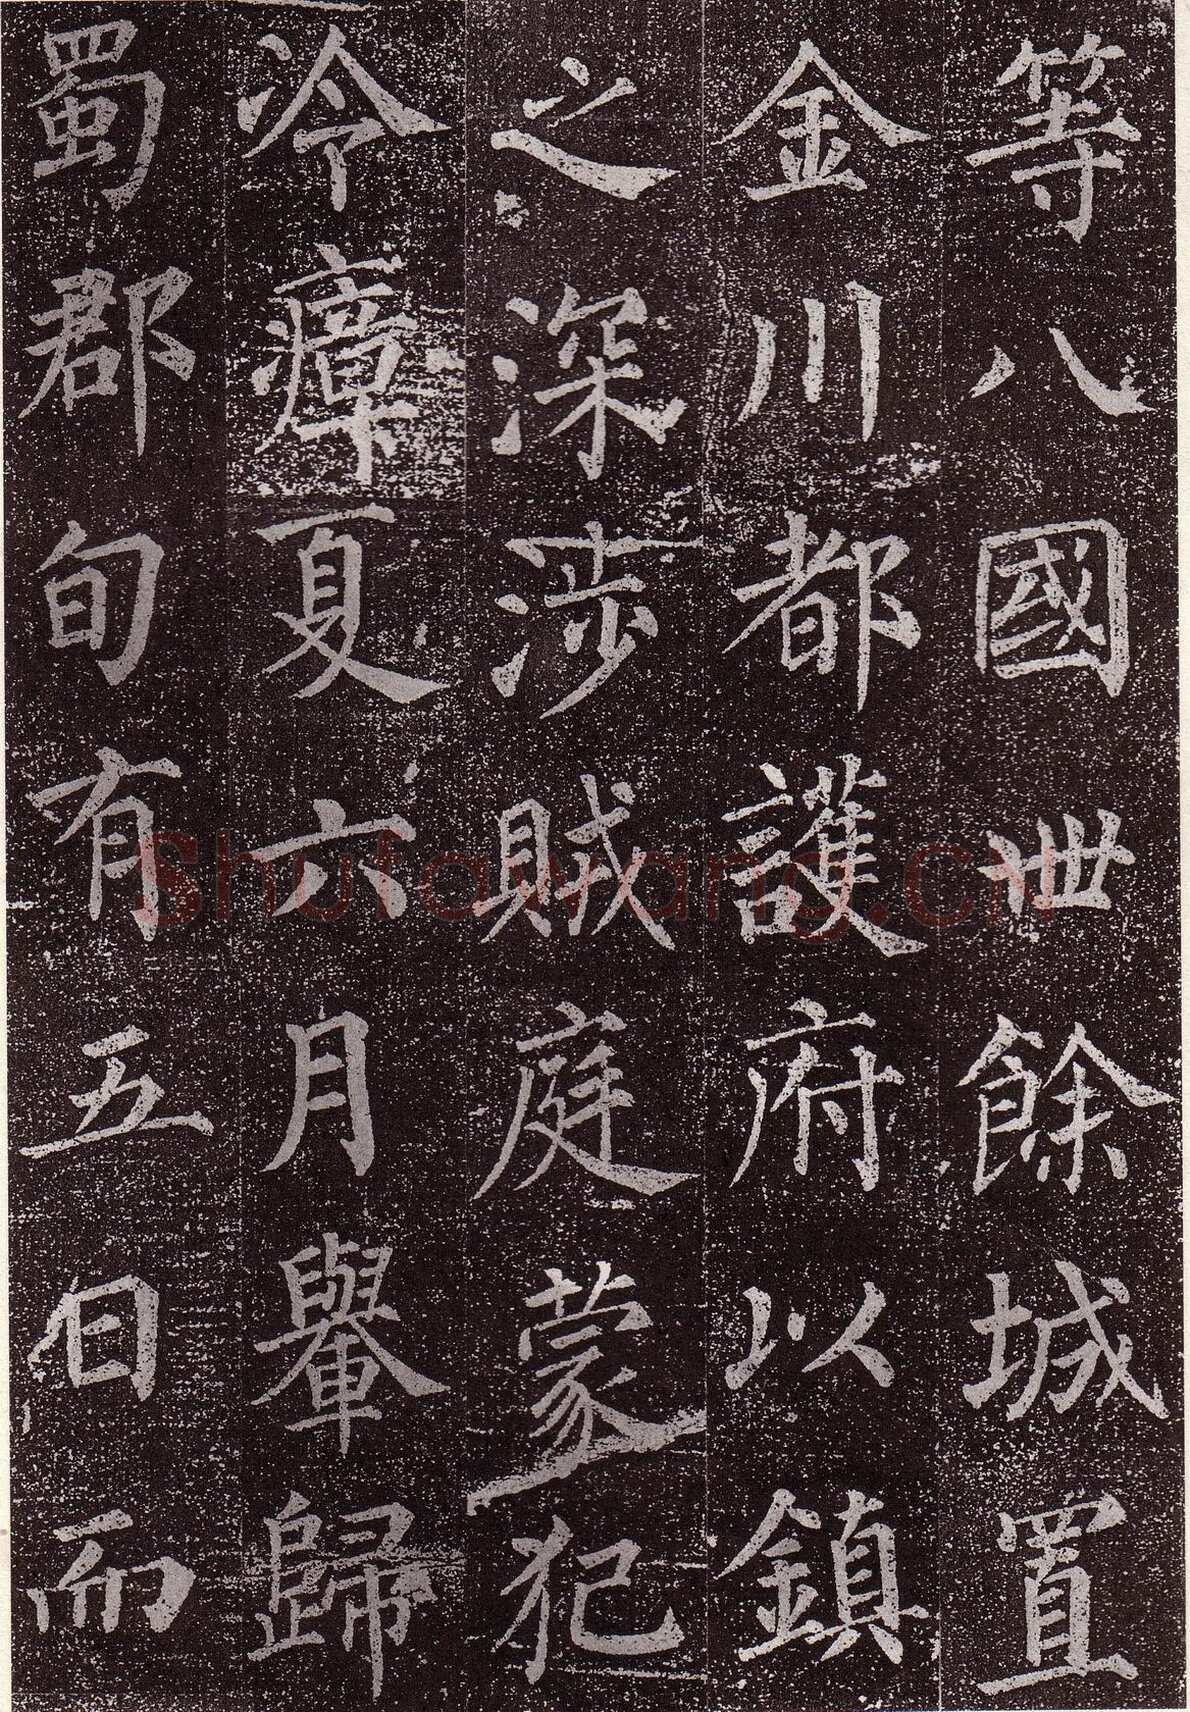 等八國丗餘城置
金川都護府以鎮
之深涉賊庭蒙犯
冷瘴夏六月轝歸
蜀郡旬有五日而
shufawang.cn